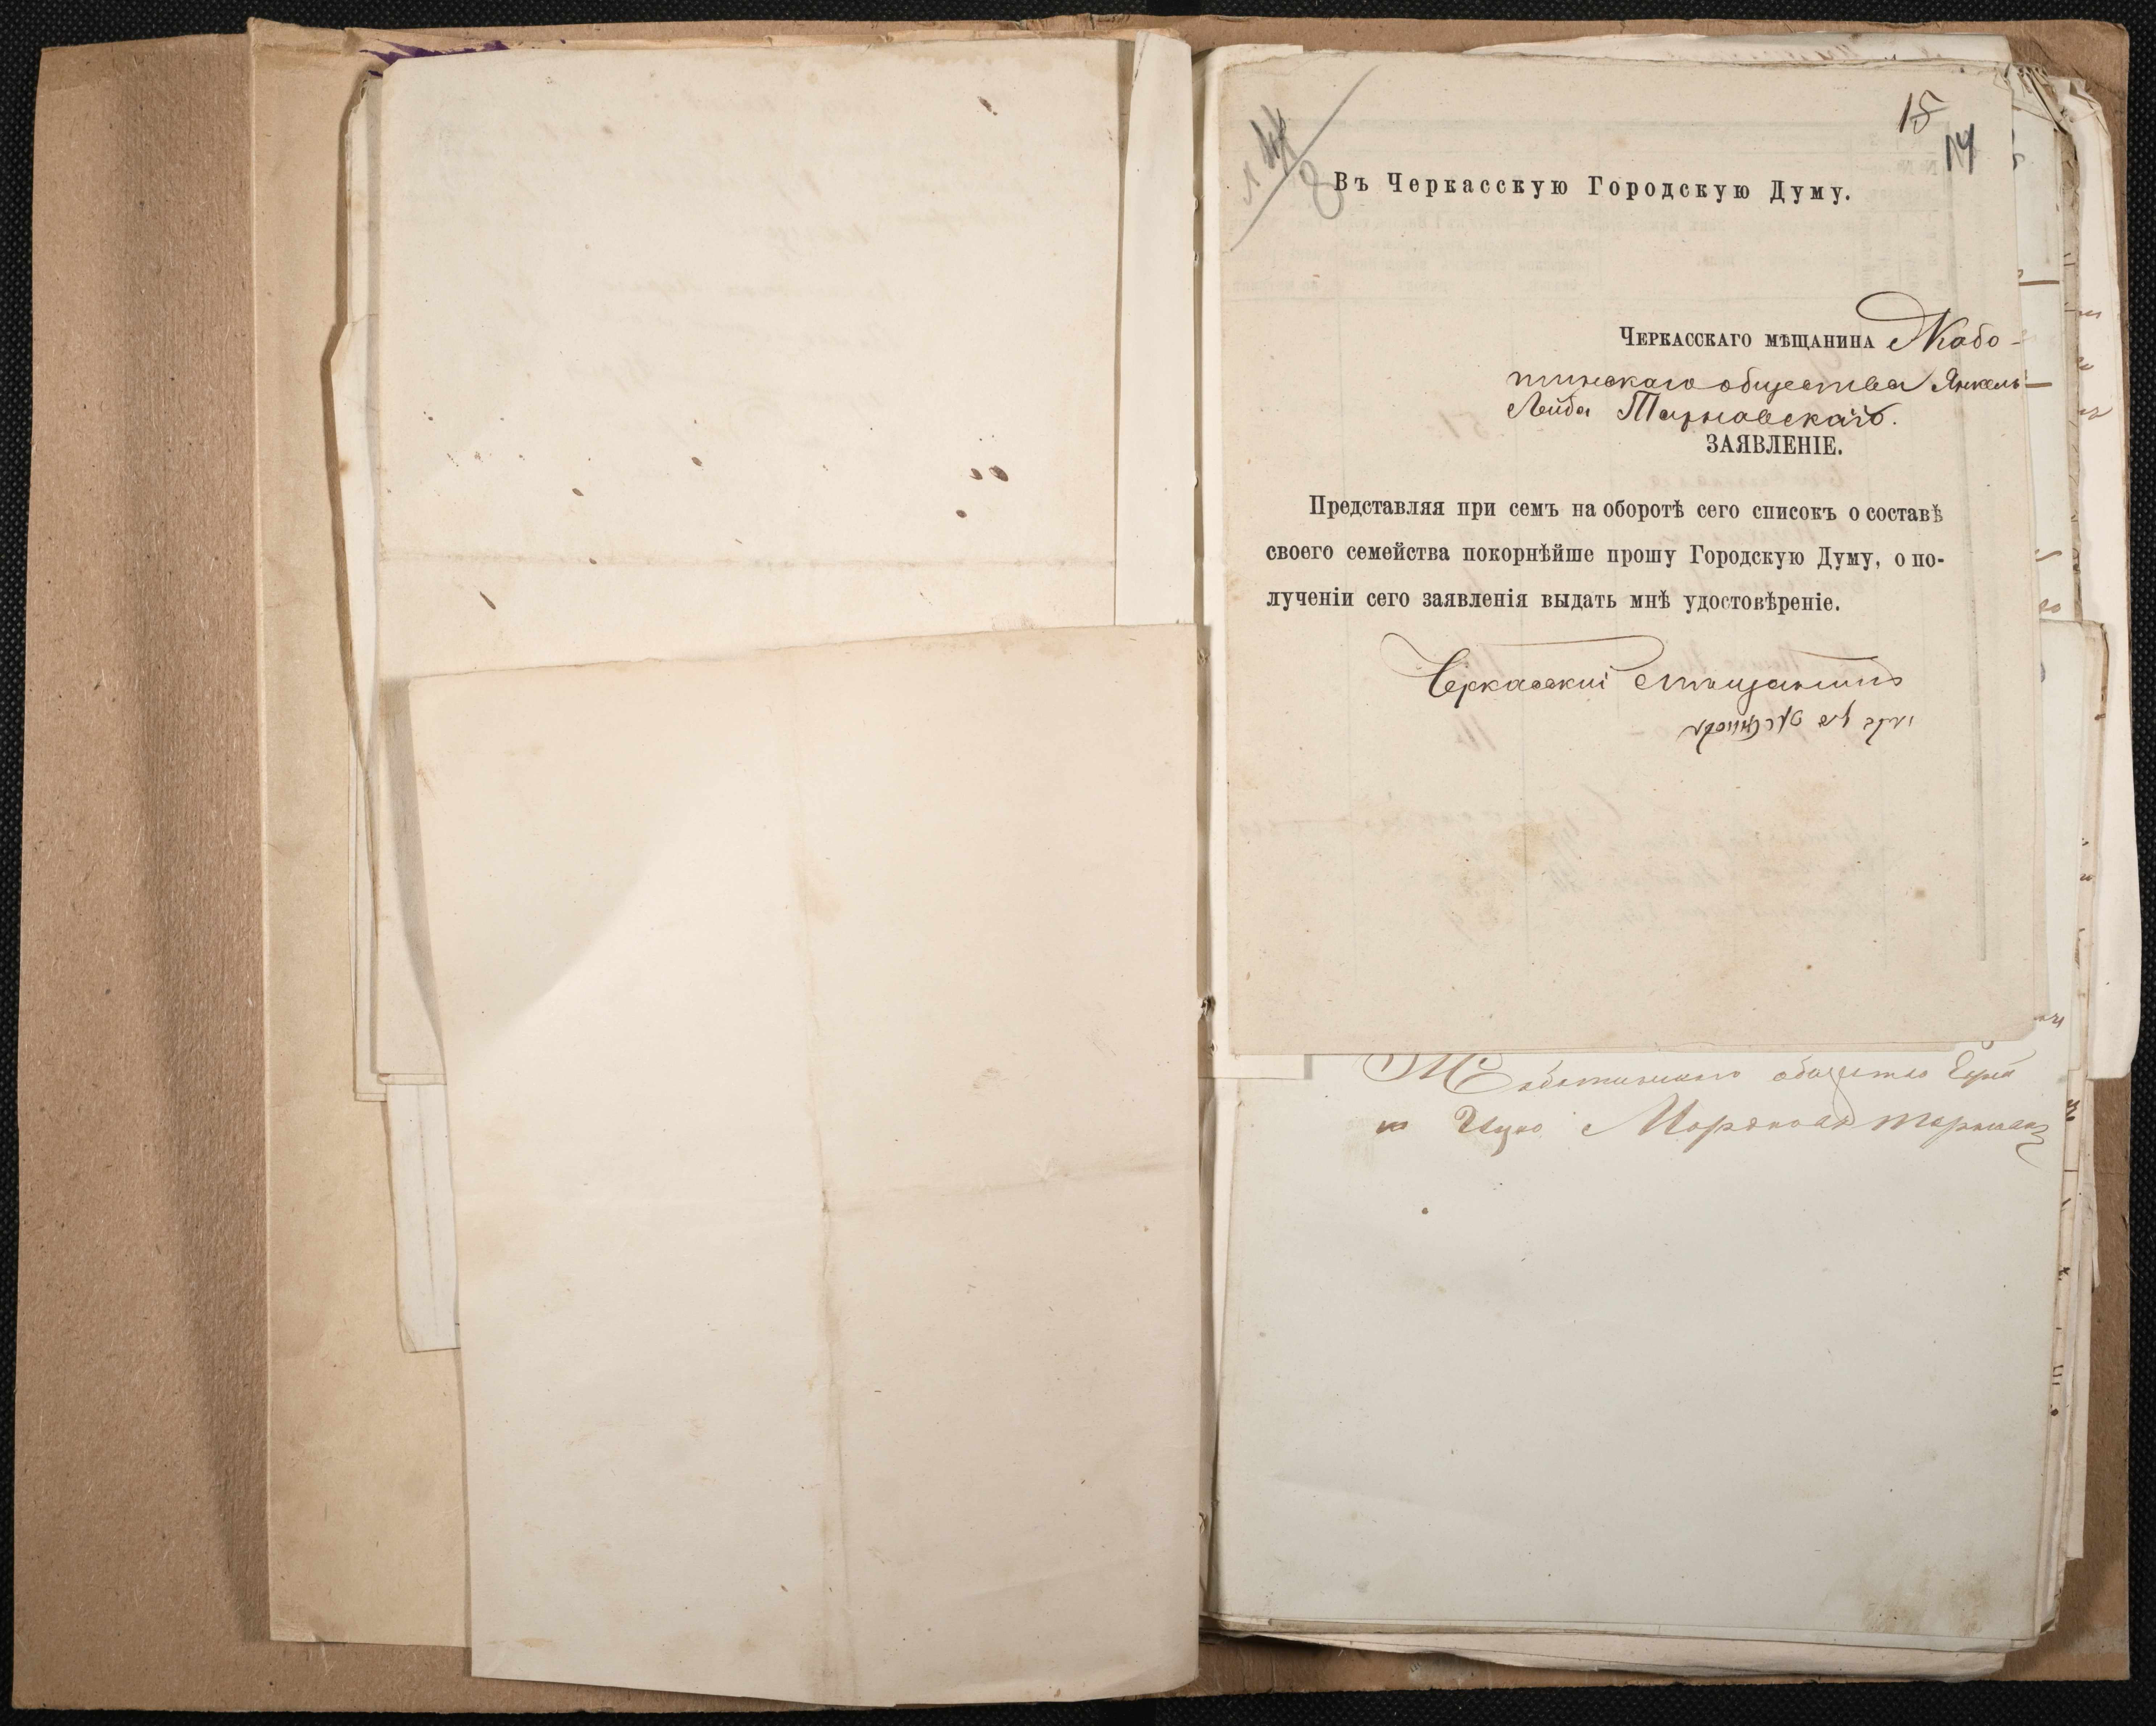 15
14
Въ Черкасскую Городскую Думу.
Черкасскаго мѣщанина Жабо-
тинскаго общества Янкель-
Лейба Тарновскаго.
ЗАЯВЛЕНІЕ.
Представляя при семъ на оборотѣ сего списокъ о составѣ
своего семейства покорнѣйше прошу Городскую Думу, о по-
лученіи сего заявленія выдать мнѣ удостовѣреніе.
Черкасскій мѣщанинъ
Жаботинскаго общество
Ицко